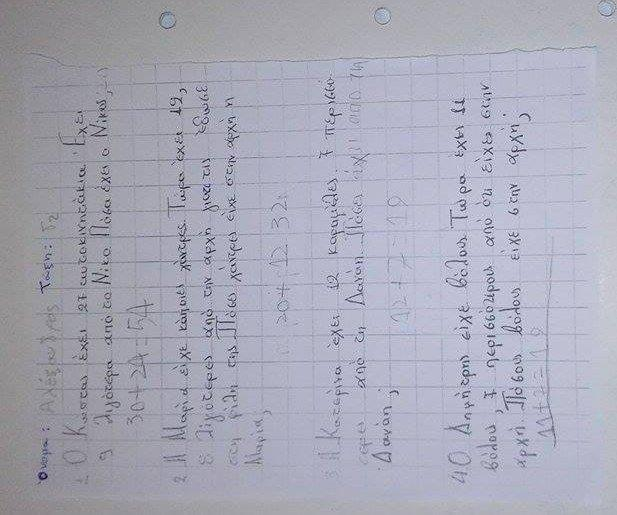 Όνομα: Αλέξανδρος Τάξη: Γ2
1 Ο Κώστας έχει 27 αυτοκινητάκια. Έχει
9 λιγότερα από το Νίκο. Πόσα έχει ο Νίκος;
30+24=54
2 Η Μαρία είχε κάποιες χάντρες. Τώρα έχει 12,
8 λιγότερες από την αρχή γιατί έδωσε
στη φίλη της. Πόσες χάντρες είχε στην αρχή η
Μαρία;
20+12 32
3 Η Κατερίνα έχει 12 καραμέλες, 7 περισσό-
τερες από τη Δανάη. Πόσες έχει
Δανάη;
12+7=19
4 Ο Δημήτρης είχε βόλους. Τώρα έχει 11
βόλους, 7 περισσότερους από ότι είχε στην
αρχή. Πόσους βόλους είχε στην αρχή;
11+7=